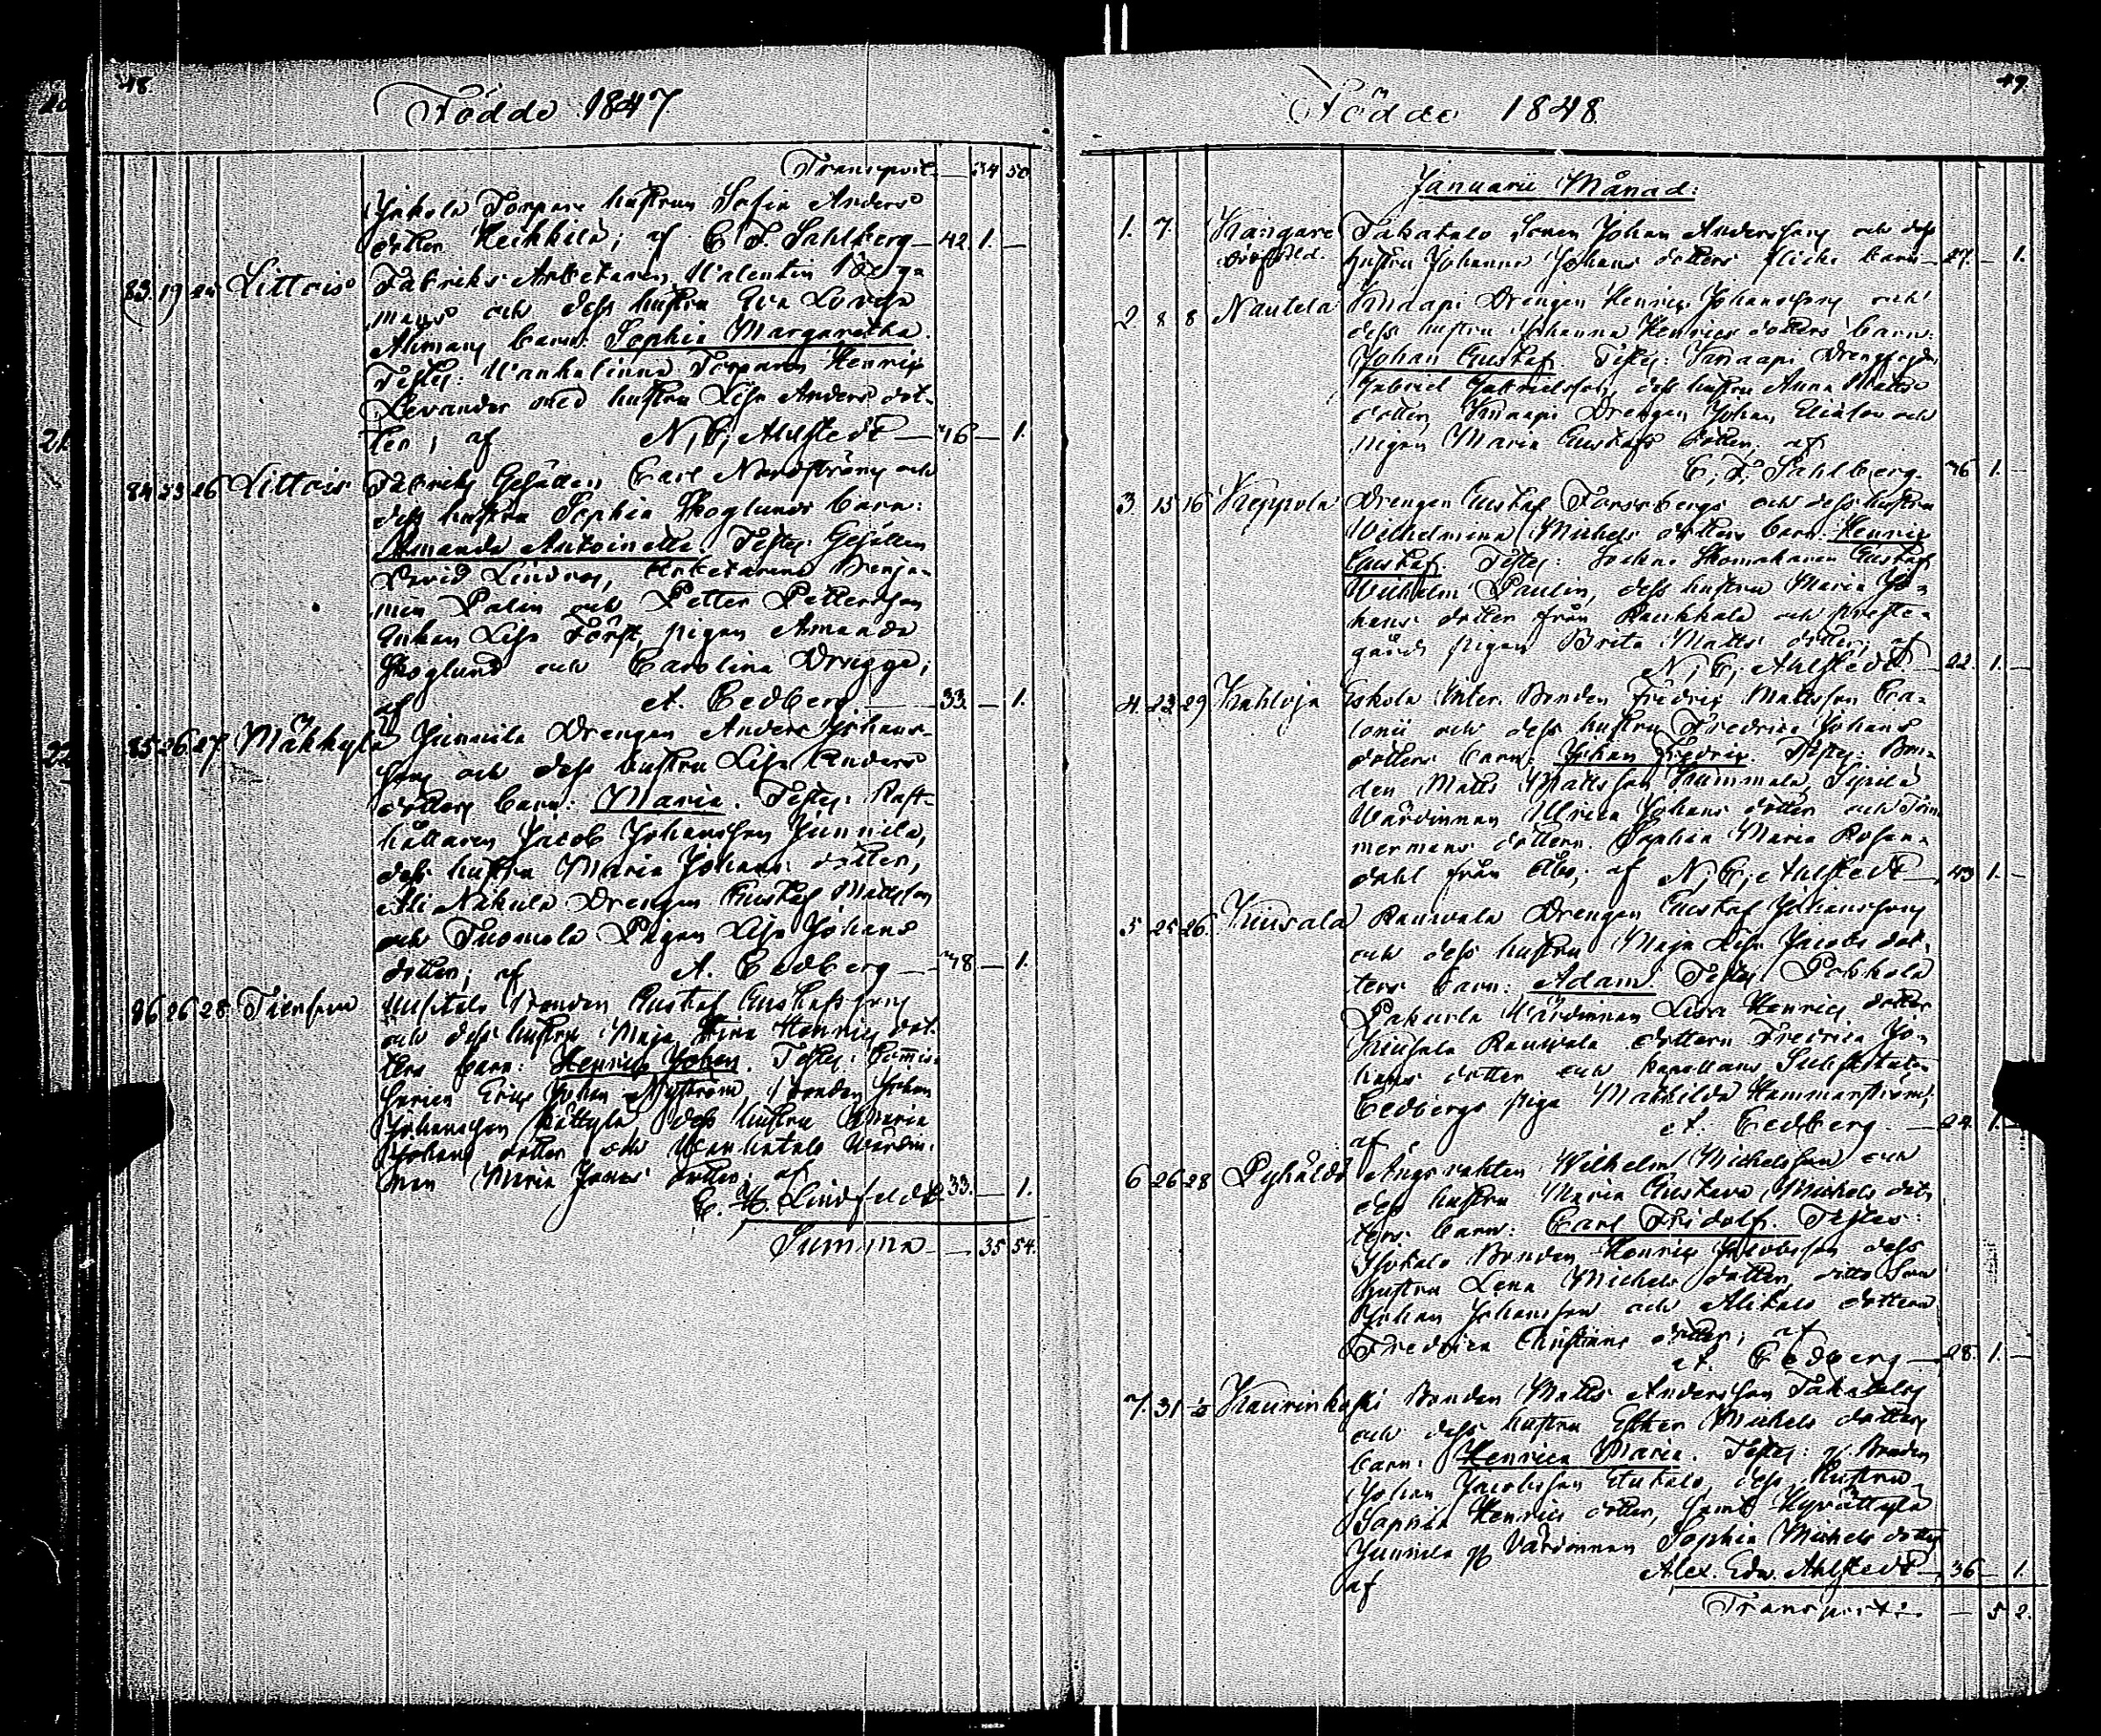 48.
Födde 1847
Transport — 34 50
Jakola Torpare hustrun Sofia Anders
dotter Heikkilä; af C. F. Sahlberg — 42. 1. —
83. 19 25 Littois Fabriks Arbetaren Valentin
mans och dess hustru Eva Lovisa
Ahmans barn: Sophia Margaretha.
Testes: Wanhalinna Torparen Henric
Levander med hustru Lisa Anders dot-
ter; af N. C. Ahlstedt — 46 — 1.
84 23 26 Littois Fabriks Gesällen Carl Nordström och
dess hustru Sophia Skoglunds barn:
Amanda Antoinette. Testes: Gesällen
David Lindros, Arbetarene Benja-
min Palin och Petter Pettersson
Enkan Lisa Förft, pigan Amanda
Skoglund och Carolina Drugge;
af A. Cedberg — 33. — 1.
85 26 27 Mäkkylä Junnila Drengen Anders Johans-
sons och dess hustru Lisa Anders
dotters barn: Maria. Testes: Rust-
hållaren Jacob Johansson Junnila,
dess hustru Maria Johans dotter,
Ali Nakula Drengen Gustaf Mattsson
och Tuomola Pigan Lisa Johans
dotter; af A. Cedberg — 38 — 1.
86 26 28 Bonden Gustaf Gustafssons
och dess hustru Maja Stina Henrics dot-
ters barn: Henric Johan. Testes: Commis-
sarien Eric Johan Nyström, Bonden Johan
Johansson Kättylä, dess hustru Maria
Johans dotter och Wanhatalo Wärdin-
nan Maria Jonas dotter; af
C. H. Lindfeldt 33. — 1.
Summa — 35 54.
49.
Födde 1848
Januarii Månad:
1. 7. Kangare Takatalo Sonen Johan Anderssons och dess
dödfödd. hustru Johanna Johans dotters flicke barn — 27. — 1.
2. 8 8 Nautela Knaapi Drengen Henric Johanssons och
dess hustru Johanna Henrics dotters barn:
Johan Gustaf. Testes: Knaapi Drengen
Gabriel Gabrielsson, dess hustru Anna Matts
dotter, Knaapi Drengen Johan Eliasson och
pigan Maria Gustafs dotter; af
C. F. Sahlberg. 36 1. —
3 15 16 Keppola Drengen Gustaf Forssbergs och dess hustru
Wilhelmina Michels dotters barn: Henric
Gustaf. Testes: Sockne Skomakaren Gustaf
Wilhelm Paulin, dess hustru Maria Jo-
hans dotter från Raukkala och preste-
gårds pigan Brita Matts dotter; af
N. C. Ahlstedt — 22. 1. —
4. 23 29 Kahloja Eskola Inter. Bonden Fredric Mattsson Cra-
lonii och dess hustru Fredrica Johans
dotters barn: Johan Fredric. Testes: Bon-
den Matts Mattsson Kummala, Sipilä
Wärdinnan Ulrica Johans dotter och Tim-
mermans dottern Sophia Maria Rosen-
dahl från Åbo; af N. C. Ahlstedt — 43 1. —
5 25 26. Kuusala Rauwala Drengen Gustaf Johanssons
och dess hustru Maja Lisa Jacobs dot-
ters barn: Adam. Testes: Pohkola
Pakurla Wärdinnan Lisa Henrics dotter
Kuusala Rauwala dottern Fredrica Jo-
hans dotter och Kapellans Substituten
Cedbergs piga Mathilda Hammarström;
af A. Cedberg. — 24. 1. —
6 26 28 Pyhältö Ängsvakten Wilhelm Michelsson och
dess hustru Maria Gustava Michels dot-
ters barn: Carl Fridolf. Testes:
Isotalo Bonden Henric Jacobsson dess
hustru Lena Michels dotter, ditto Son
Johan Johansson och Alitalo dottern
Fredrica Christians dotter; af
A. Cedberg — 28. 1. —
7. 31 1/2 Kaurinkoski Bonden Matts Andersson Takatalos
och dess hustru Esther Michels dotters
barn: Henrica Maria. Testes: gl. Bonden
Johan Jacobsson Etutalo, dess hustru
Sophia Henrics dotter, samt Hyvättylä
Junnila gl. Värdinnan Sophia Michels dotter
af Alex. Edw. Ahlstedt — 36 — 1.
Transport: — 5 2.